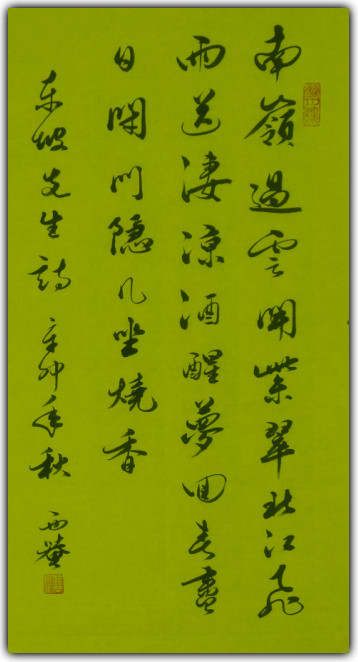 南嶺過雲開紫翠北江飛
雨送淒涼酒醒夢回春盡
日閉門隱几坐燒香
東坡先生詩 辛卯年秋 西